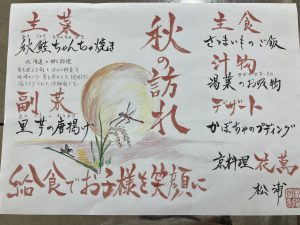 秋の訪れ
主食
さつまいものご飯
汁物
湯葉のお吸物
デザート
かぼちゃのプディング
主菜
秋鮭ちゃんちゃん焼き
北海道の郷土料理
副菜
里芋の唐揚げ
給食でお子様を笑顔に
京料理 花萬
松浦